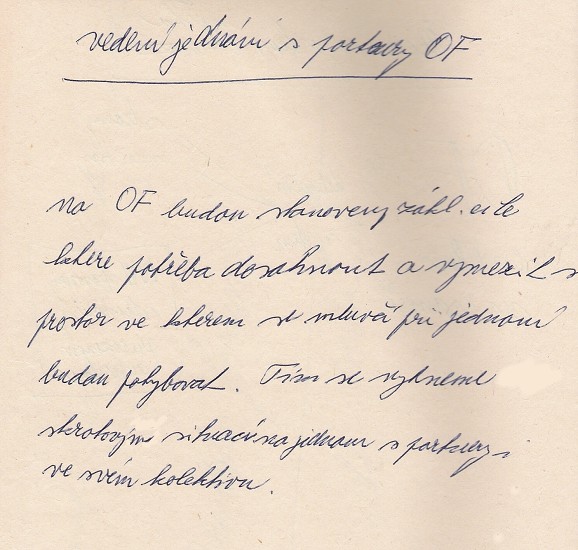 vedení jednání s partnery OF
na OF budou stanoveny zákl. cíle
které potřeba dosáhnout a vymezit s
prostor ve kterém se mluvčí při jednání
budou pohybovat. Tím se vyhneme
situací na jednání s partnery
ve svém kolektivu.